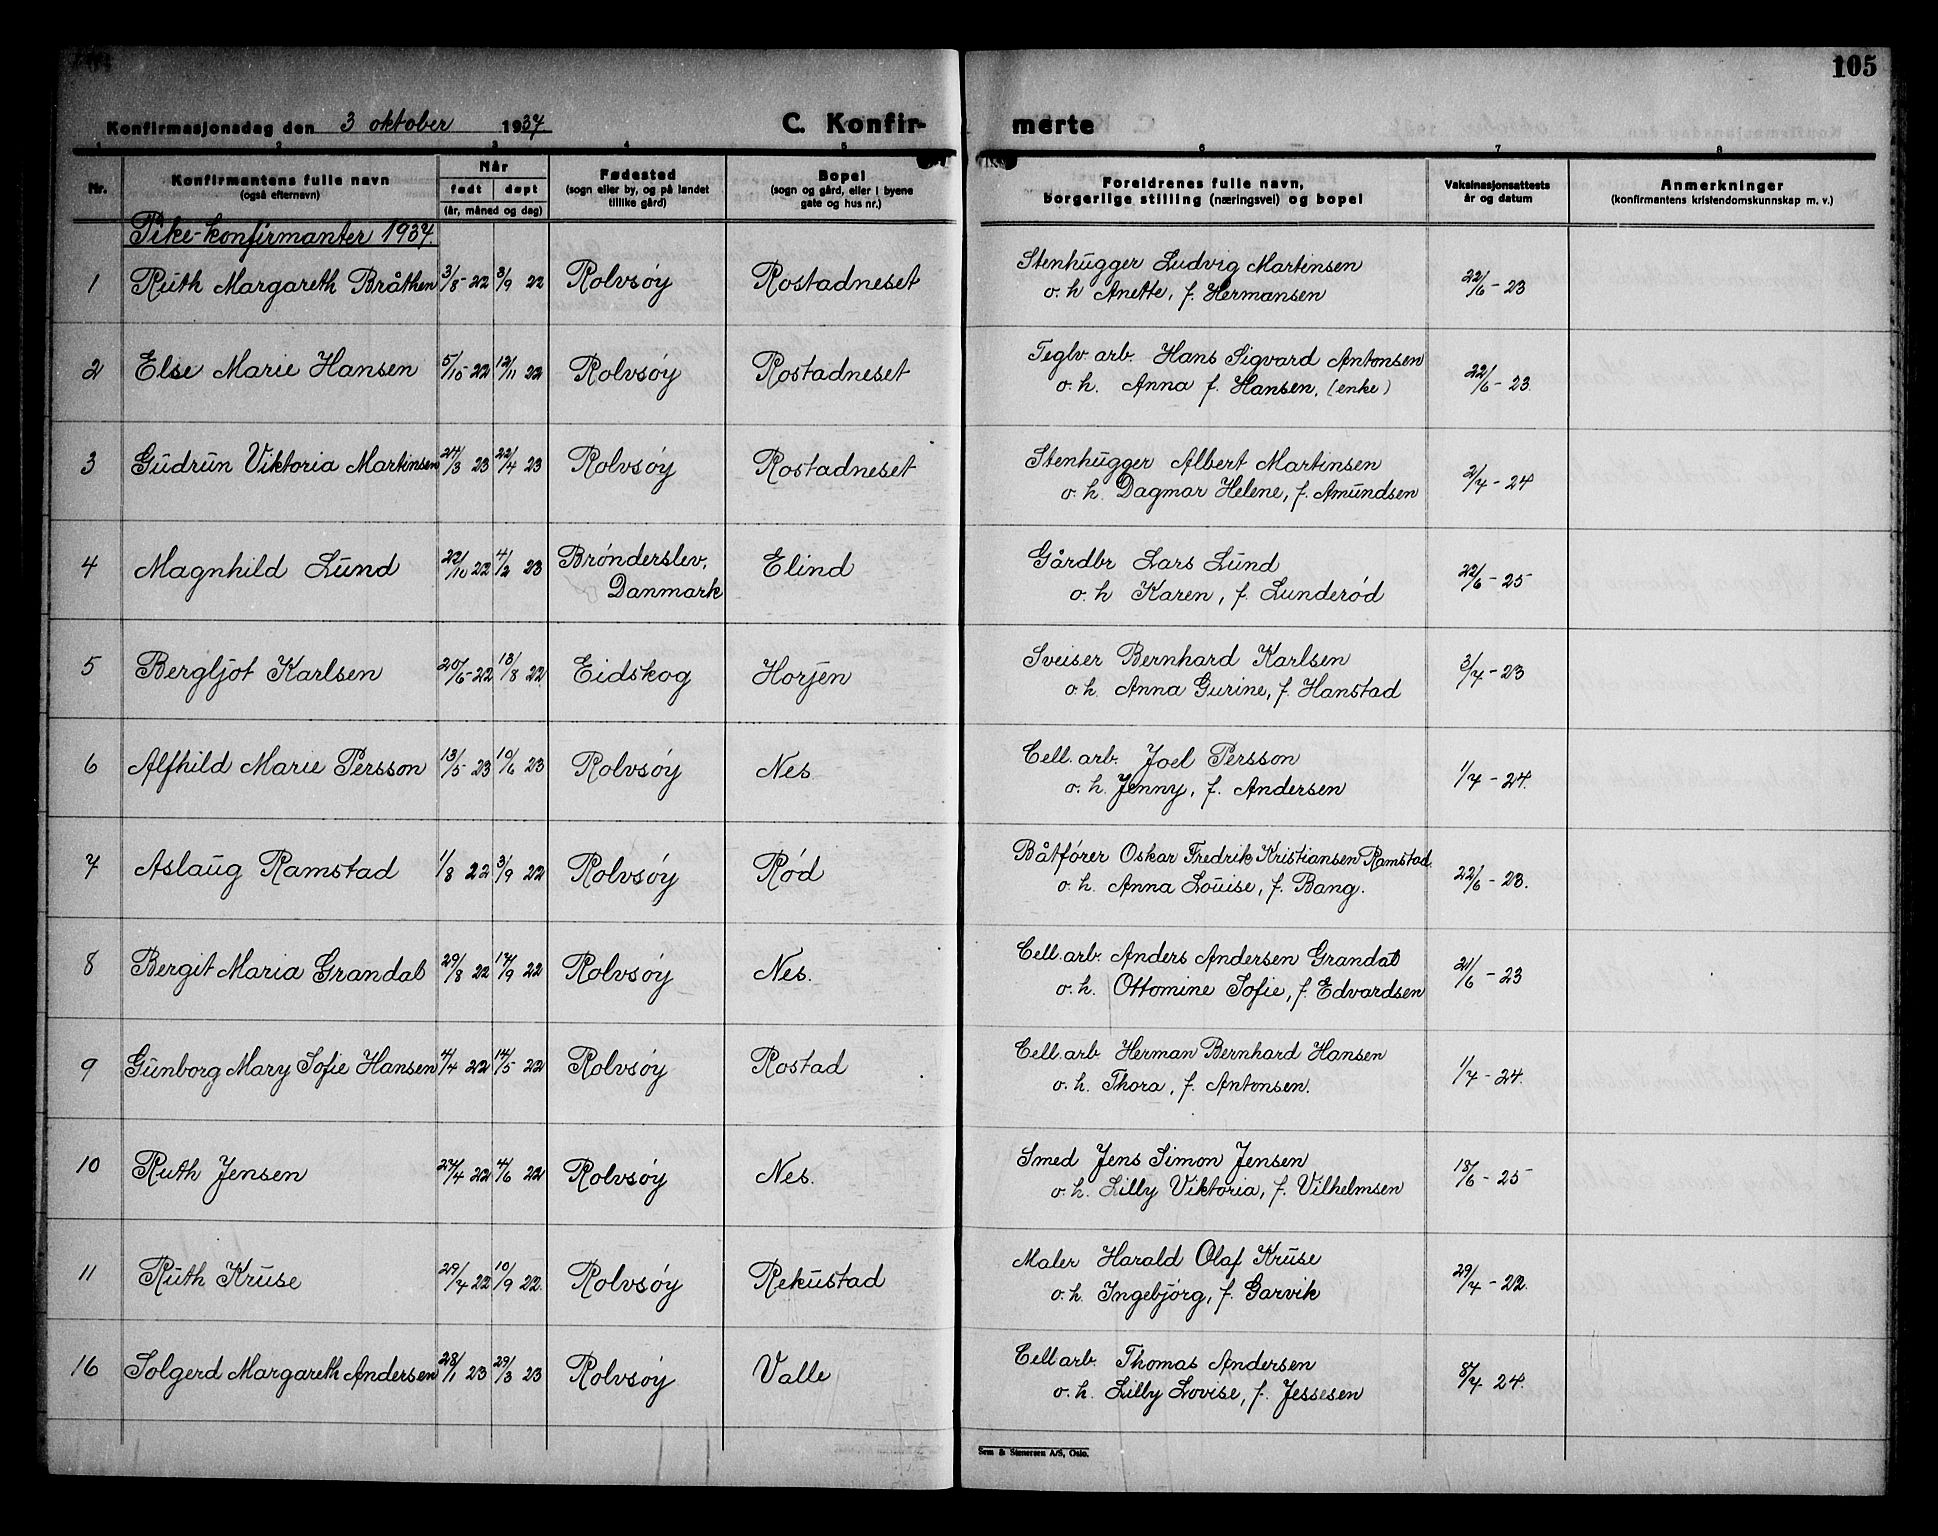 105
Konfirmasjonsdag den 3 oktober 1937 C. Konfir- merte
1 2 3 4 5 6 7 8
Nr. Konfirmantens fulle navn (også efternavn) Når født døpt (år, måned og dag) Fødested (sogn eller by, og på landet tillike gård) Bopel (sogn og gård, eller i byene gate og hus nr.) Foreldrenes fulle navn, borgerlige stilling (næringsvei) og bopel Vaksinasjonsattests år og datum Anmerkninger (konfirmantens kristendomskunnskap m. v.)
Pike-konfirmanter 1937.
1 Ruth Margareth Bråthen 3/8-22 3/9 22 Rolvsøy Rostadneset Stenhugger Ludvig Martinsen 22/6-23
o. h Anette, f. Hermansen
2 Else Marie Hansen 5/10-22 12/11 22 Rolvsøy Rostadneset Teglv. arb. Hans Sigvard Antonsen 22/6-23
o. h. Anna f. Hansen, (enke)
3 Gudrun Viktoria Martinsen 24/3 23 22/4 23 Rolvsøy Rostadneset Stenhugger Albert Martinsen 2/7-24
o. h. Dagmar Helene, f. Amundsen
4 Magnhild Lund 22/10 22 4/2 23 Brønderslev, Elind Gårdbr Lars Lund 22/6-25
Danmark o. h Karen, f. Lunderød
5 Bergljot Karlsen 20/6-22 13/8 22 Eidskog Horjen Sveiser Bernhard Karlsen 3/7-23
o. h. Anna Gurine, f. Hanstad
6 Alfhild Marie Persson 13/5 23 10/6 23 Rolvsøy Nes. Cell. arb. Joel Persson 1/7-24.
o. h. Jenny, f. Andersen
7 Aslaug Ramstad 1/8 22 3/9 22 Rolvsøy Rød Båtfører Oskar Fredrik Kristiansen Ramstad 22/6-23.
o. h. Anna Louise, f. Bang.
8 Bergit Maria Grandal 29/8 22 17/9 22 Rolvsøy Nes. Cell. arb. Anders Andersen Grandal 21/6-23
o. h. Ottomine Sofie, f. Edvardsen
9 Gunborg Mary Sofie Hansen 4/4 22 14/5 22 Rolvsøy Rostad Cell. arb. Herman Bernhard Hansen 1/7-24.
o. h. Thora, f. Antonsen.
10 Ruth Jensen 27/4 22 4/6 22 Rolvsøy Nes. Smed Jens Simon Jensen 18/6-25
o. h. Lilly Viktoria, f. Vilhelmsen
11 Ruth Kruse 29/7 22 10/9 22. Rolvsøy Rekustad Maler Harald Olaf Kruse 29/7-22.
o. h. Ingebjørg, f. Garvik
16 Solgerd Margareth Andersen 28/1 23 29/3 23 Rolvsøy Valle Cell arb. Thomas Andersen 8/7 24.
o. h. Lilly Lovise, f. Jessesen
Sem & Stenersen A/S, Oslo.